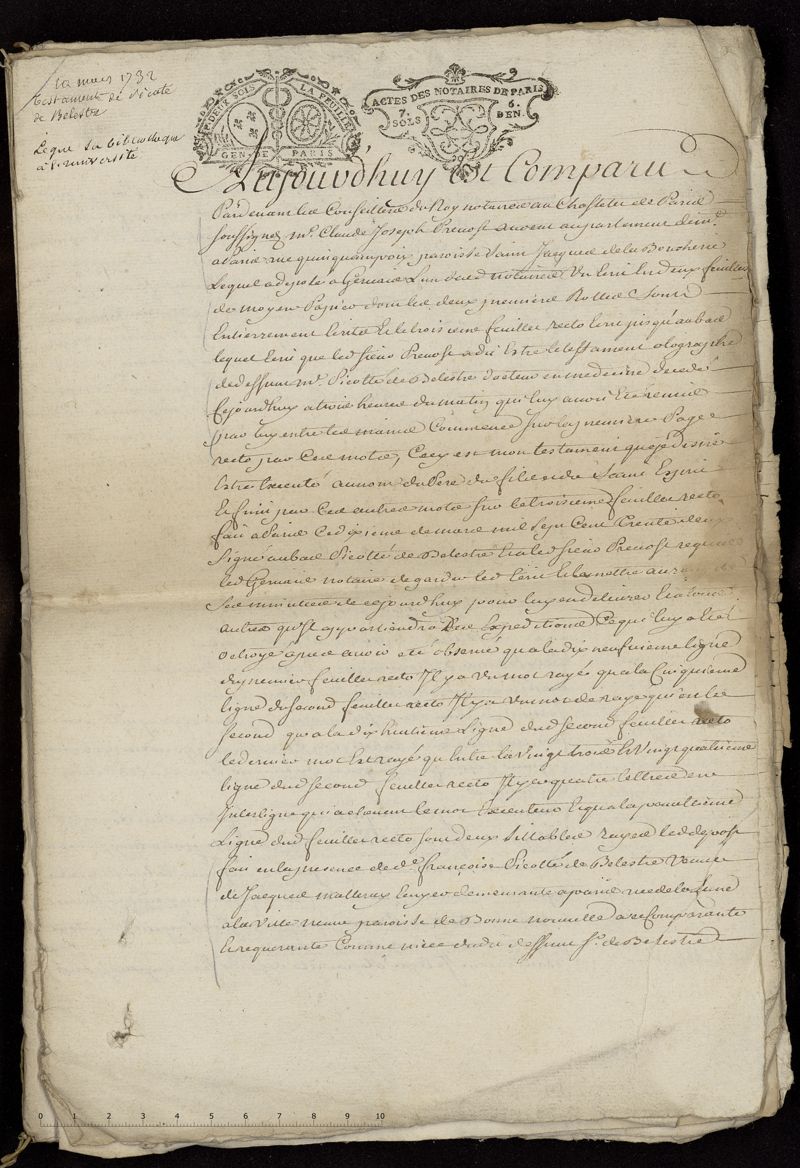 10 mars 1732
testament de Picoté
de Belestre
Legue sa bibliotheque
à l'université
DEUX SOLS LA FEUILLE
GEN. DE PARIS
ACTES DES NOTAIRES DE PARIS
7. SOLS 6. DEN.
Aujourd'huy est Comparu
Pardevant les Conseillers du Roy notaires au Chastelet de Paris
soussignez Mr. Claude Joseph Prevost avocat au parlement dem.t
a Paris rue quinquempoix paroisse saint Jacques de la Boucherie
Lequel a deposé a Germain L'un desd notaires Un Ecrit en deux feuilles
de moyen Papier dont les deux premiers Rolles sont
Entierrement Ecrits Et le troisieme feuillet recto Ecrit jusqu'au bas
lequel Ecrit que led sieur Prevost a dit Estre le testament olographe
de deffunt Mr. Picotté de Belestre docteur en medecine decedé
cejourd'huy a trois heures du matin qui luy avoit Eté remis
par luy entre les mains Commencé sur la premiere Page
recto par Ces motes, Cecy est mon testament que je desire
Estre Executé au nom du Pere du fils et du Saint Esprit
Et fini par Ces autres motes sur le troisieme feuillet recto
fait a Paris Ce dixieme de mars mil sept Cent Trente deux
signé au bas Picotté de Belestre Et a led sieur Prevost requis
led Germain notaire de garder led Ecrit Et le mettre au rang de
ses minutes de cejourd'huy pour luy en delivrer Et a tous
autres qu'il appartiendra Des Expeditions Ce qui luy a Eté
octroyé apres avoir eté observé qu'a la dix neufvieme ligne
du premier feuillet recto Il y a un mot rayé qu'a la Cinquieme
ligne du second feuillet recto Il y a un mot de rayé
second qu'a la dix huitieme Ligne dud second feuillet recto
le dernier mot Est rayé qu'entre la Vingt trois Et Vingt quatrieme
ligne dud second feuillet recto Il y a quatre lettres en
Interligne qui achevent le mot Executeur Et qu'a la penultieme
Ligne dud feuillet recto sont deux sillables rayées led depost
fait en la presence de de. Françoise Picotté de Belestre Veuve
de Jacques Malteaux demeurante a Paris rue de la Lune
a la Ville neuve paroisse de Bonne nouvelle a ce Comparante
Et requerante Comme niece dudit deffunt Sr. de Belestre
0 1 2 3 4 5 6 7 8 9 10